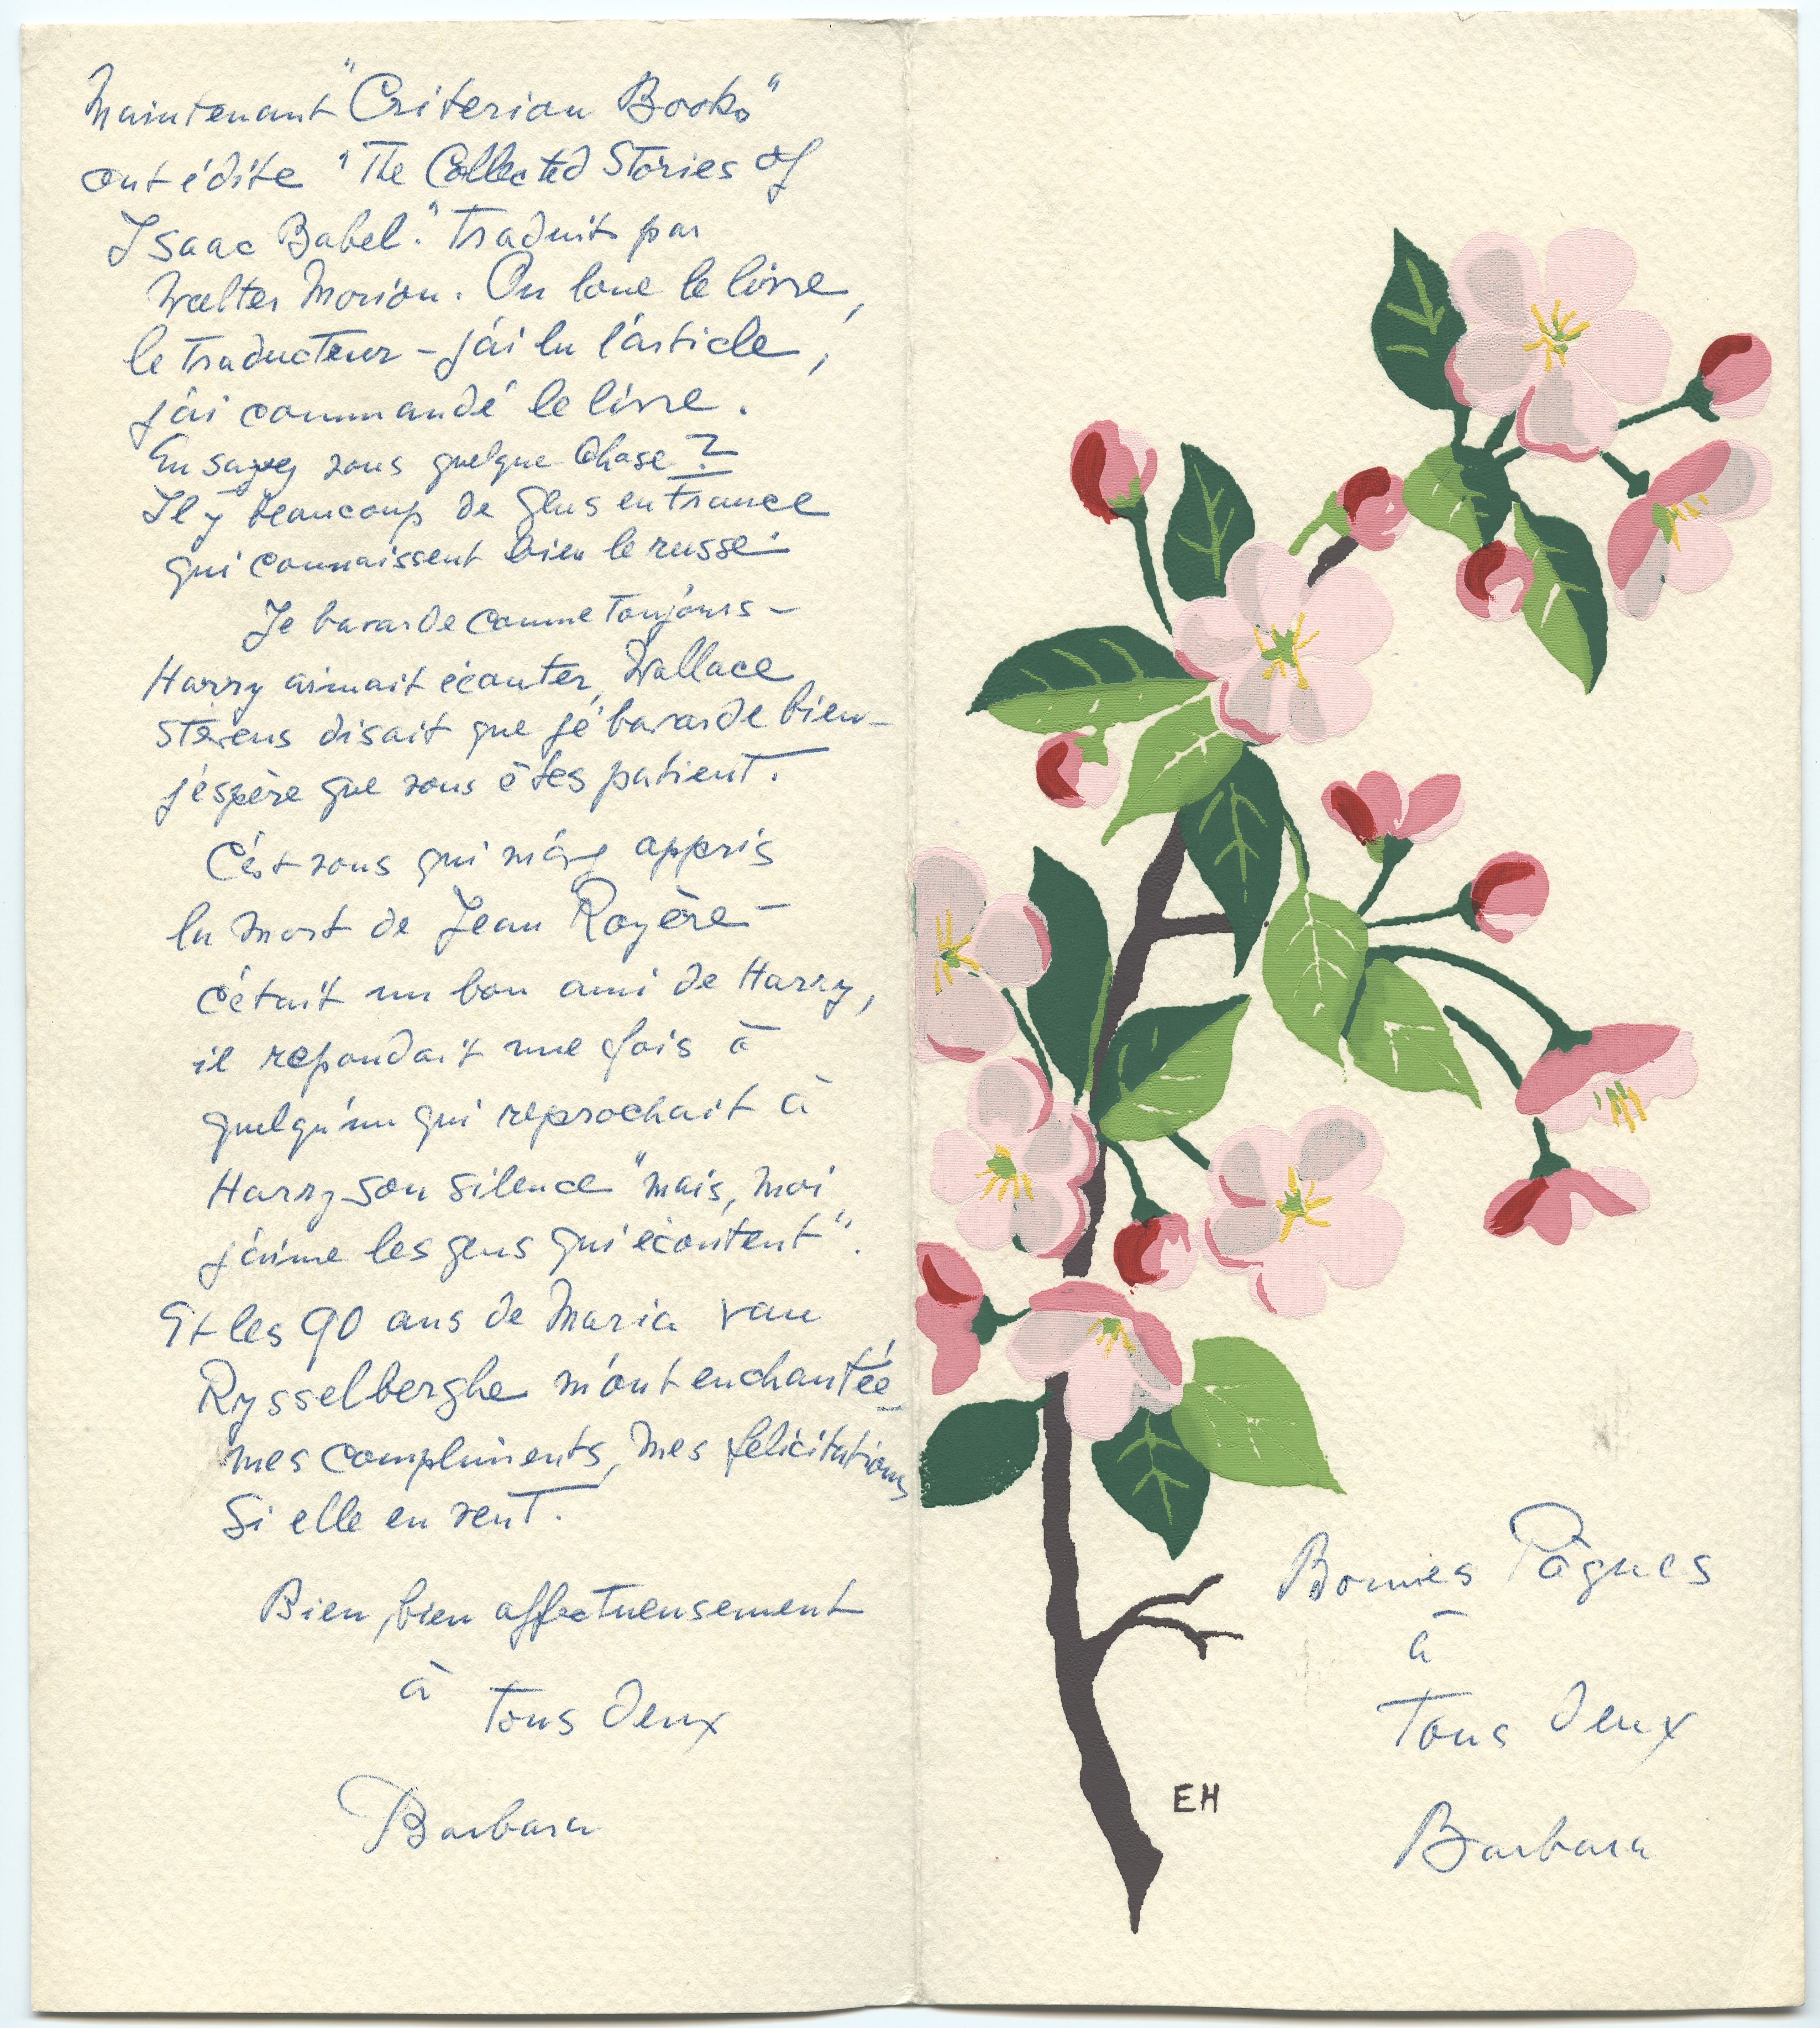 Maintenant "Criterion Books"
ont édité "The Collected Stories of
Isaac Babel." Traduit par
Walter Morison. On loue le livre,
le traducteur – j'ai lu l'article,
j'ai commandé le livre.
En savez vous quelque chose ?
Il y beaucoup de gens en France
qui connaissent bien le russe.
Je bavarde comme toujours –
Harry aimait écouter, Wallace
Stevens disait que je bavarde bien –
j'espère que vous êtes patient.
C'est vous qui m'avez appris
la mort de Jean Royère –
c'était un bon ami de Harry,
il repondait une fois à
quelqu'un qui reprochait à
Harry son silence "mais, moi
j'aime les gens qui écoutent".
Et les 90 ans de Maria van
Rysselberghe m'ont enchantée –
mes compliments, mes felicitations
Si elle en veut.
Bien, bien affectueusement
à
tous deux
Barbara
EH
Bonnes Pâques
à
Tous deux
Barbara